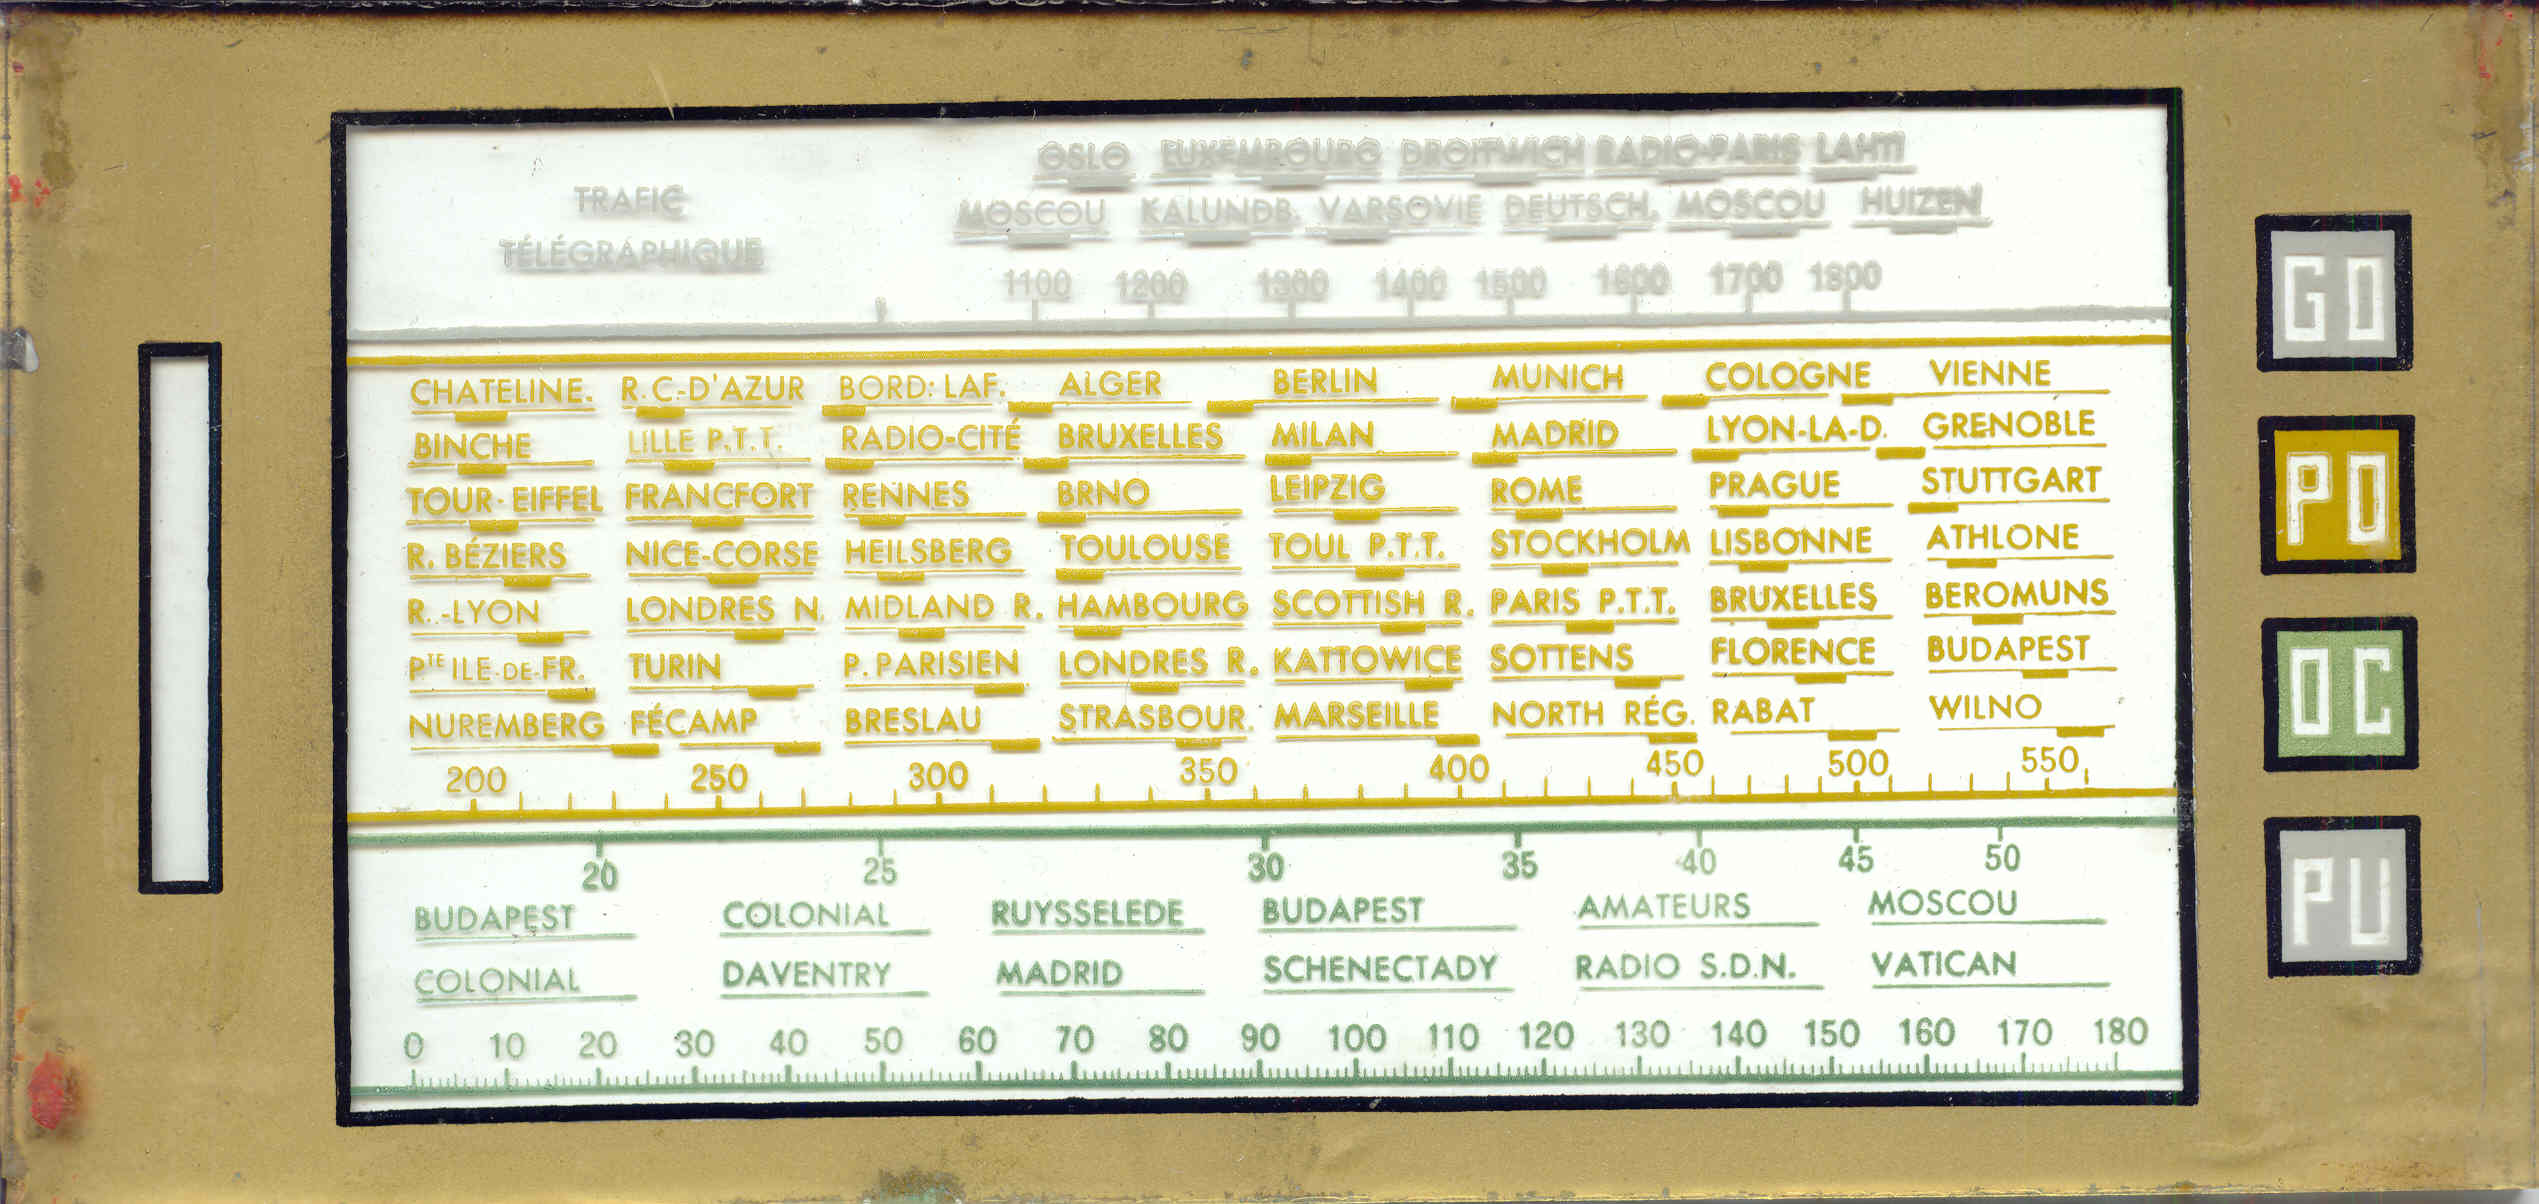 OSLO LUXEMBOURG DROITWICH RADIO-PARIS LAHTI
TRAFIC
MOSCOU KALUNDB. VARSOVIE DEUTSCH. MOSCOU HUIZEN
TÉLÉGRAPHIQUE
1100 1200 1300 1400 1500 1600 1700 1800
GO
CHATELINE. R.C-D'AZUR BORD: LAF. ALGER BERLIN MUNICH COLOGNE VIENNE
BINCHE LILLE P.T.T. RADIO-CITÉ BRUXELLES MILAN MADRID LYON-LA-D. GRENOBLE
TOUR-EIFFEL FRANCFORT RENNES BRNO LEIPZIG ROME PRAGUE STUTTGART
PO
R. BÉZIERS NICE-CORSE HEILSBERG TOULOUSE TOUL P.T.T. STOCKHOLM LISBONNE ATHLONE
R..-LYON LONDRES N. MIDLAND R. HAMBOURG SCOTTISH R. PARIS P.T.T. BRUXELLES BEROMUNS
PTE ILE-DE-FR. TURIN P. PARISIEN LONDRES R. KATTOWICE SOTTENS FLORENCE BUDAPEST
NUREMBERG FÉCAMP BRESLAU STRASBOUR. MARSEILLE NORTH RÉG. RABAT WILNO
OC
200 250 300 350 400 450 500 550
20 25 30 35 40 45 50
BUDAPEST COLONIAL RUYSSELEDE BUDAPEST AMATEURS MOSCOU
PU
COLONIAL DAVENTRY MADRID SCHENECTADY RADIO S.D.N. VATICAN
0 10 20 30 40 50 60 70 80 90 100 110 120 130 140 150 160 170 180